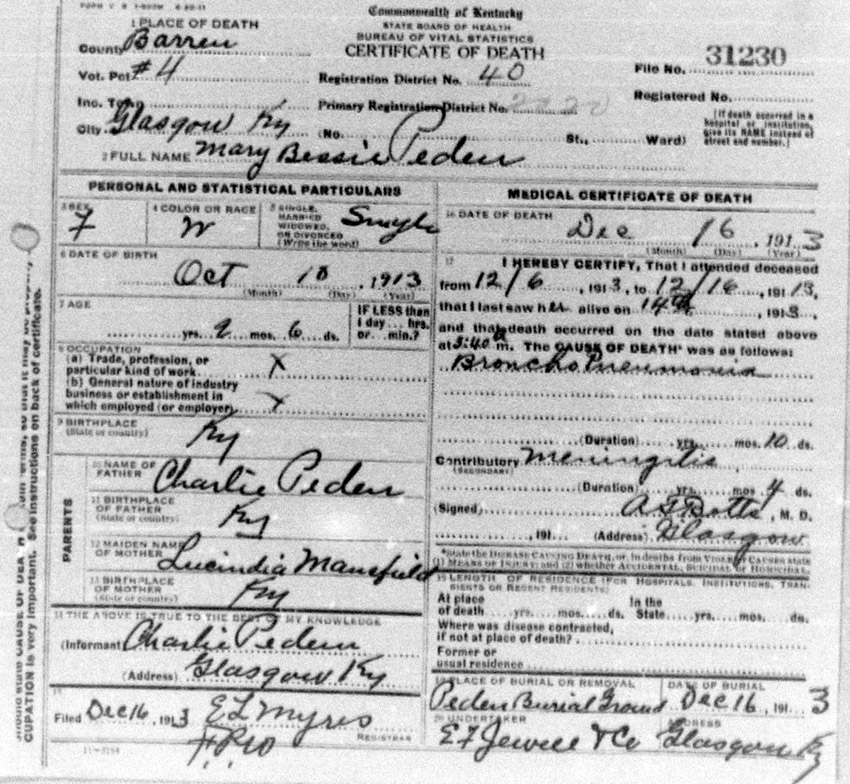 Commonwealth of Kentucky
STATE BOARD OF HEALTH
BUREAU OF VITAL STATISTICS
CERTIFICATE OF DEATH
1 PLACE OF DEATH
County Barren
Vot. Pct #4
Inc. Town
City Glasgow Ky
Registration District No. 40
Primary Registration District No.
(No. St., Ward)
File No. 31230
Registered No.
[If death occurred in a
hospital or institution,
give its NAME instead of
street and number.]
2 FULL NAME Mary Bessie Peden
PERSONAL AND STATISTICAL PARTICULARS
3 SEX
F
4 COLOR OR RACE
W
5 SINGLE,
MARRIED
WIDOWED,
OR DIVORCED
(Write the word)
Single
6 DATE OF BIRTH
Oct 10, 1913
(Month) (Day) (Year)
7 AGE
yrs. 2 mos. 6 ds.
IF LESS than
1 day ... hrs.
or ... min.?
8 OCCUPATION
(a) Trade, profession, or
particular kind of work X
(b) General nature of industry
business or establishment in
which employed (or employer) X
9 BIRTHPLACE
(State or country)
Ky
PARENTS
10 NAME OF
FATHER
Charlie Peden
11 BIRTHPLACE
OF FATHER
(State or country)
Ky
12 MAIDEN NAME
OF MOTHER
Lucindia Mansfield
13 BIRTHPLACE
OF MOTHER
(State or country)
Ky
14 THE ABOVE IS TRUE TO THE BEST OF MY KNOWLEDGE
(Informant Charlie Peden
(Address) Glasgow Ky
15
Filed Dec 16, 1913 E L Myres
REGISTRAR
MEDICAL CERTIFICATE OF DEATH
16 DATE OF DEATH
Dec 16, 1913
(Month) (Day) (Year)
17
I HEREBY CERTIFY, That I attended deceased
from 12/6, 1913, to 12/16, 1913,
that I last saw her alive on 14th, 1913,
and that death occurred on the date stated above
at 3:40 a m. The CAUSE OF DEATH* was as follows:
Broncho Pneumonia
(Duration) yrs. mos. 10 ds.
Contributory Meningitis
(SECONDARY)
(Duration) yrs. mos 4 ds.
(Signed) Botts, M. D.
, 191 (Address) Glasgow
*State the DISEASE CAUSING DEATH, or, in deaths from VIOLENT CAUSES state
(1) MEANS OF INJURY; and (2) whether ACCIDENTAL, SUICIDAL or HOMICIDAL.
18 LENGTH OF RESIDENCE (FOR HOSPITALS, INSTITUTIONS, TRAN-
SIENTS OR RECENT RESIDENTS)
At place
of death yrs. mos. ds.
In the
State yrs. mos. ds.
Where was disease contracted,
if not at place of death?
Former or
usual residence
19 PLACE OF BURIAL OR REMOVAL
Peden Burial Ground
DATE OF BURIAL
Dec 16, 1913
20 UNDERTAKER
E F Jewell & Co
ADDRESS
Glasgow Ky
CUPATION is very important. See instructions on back of certificate.